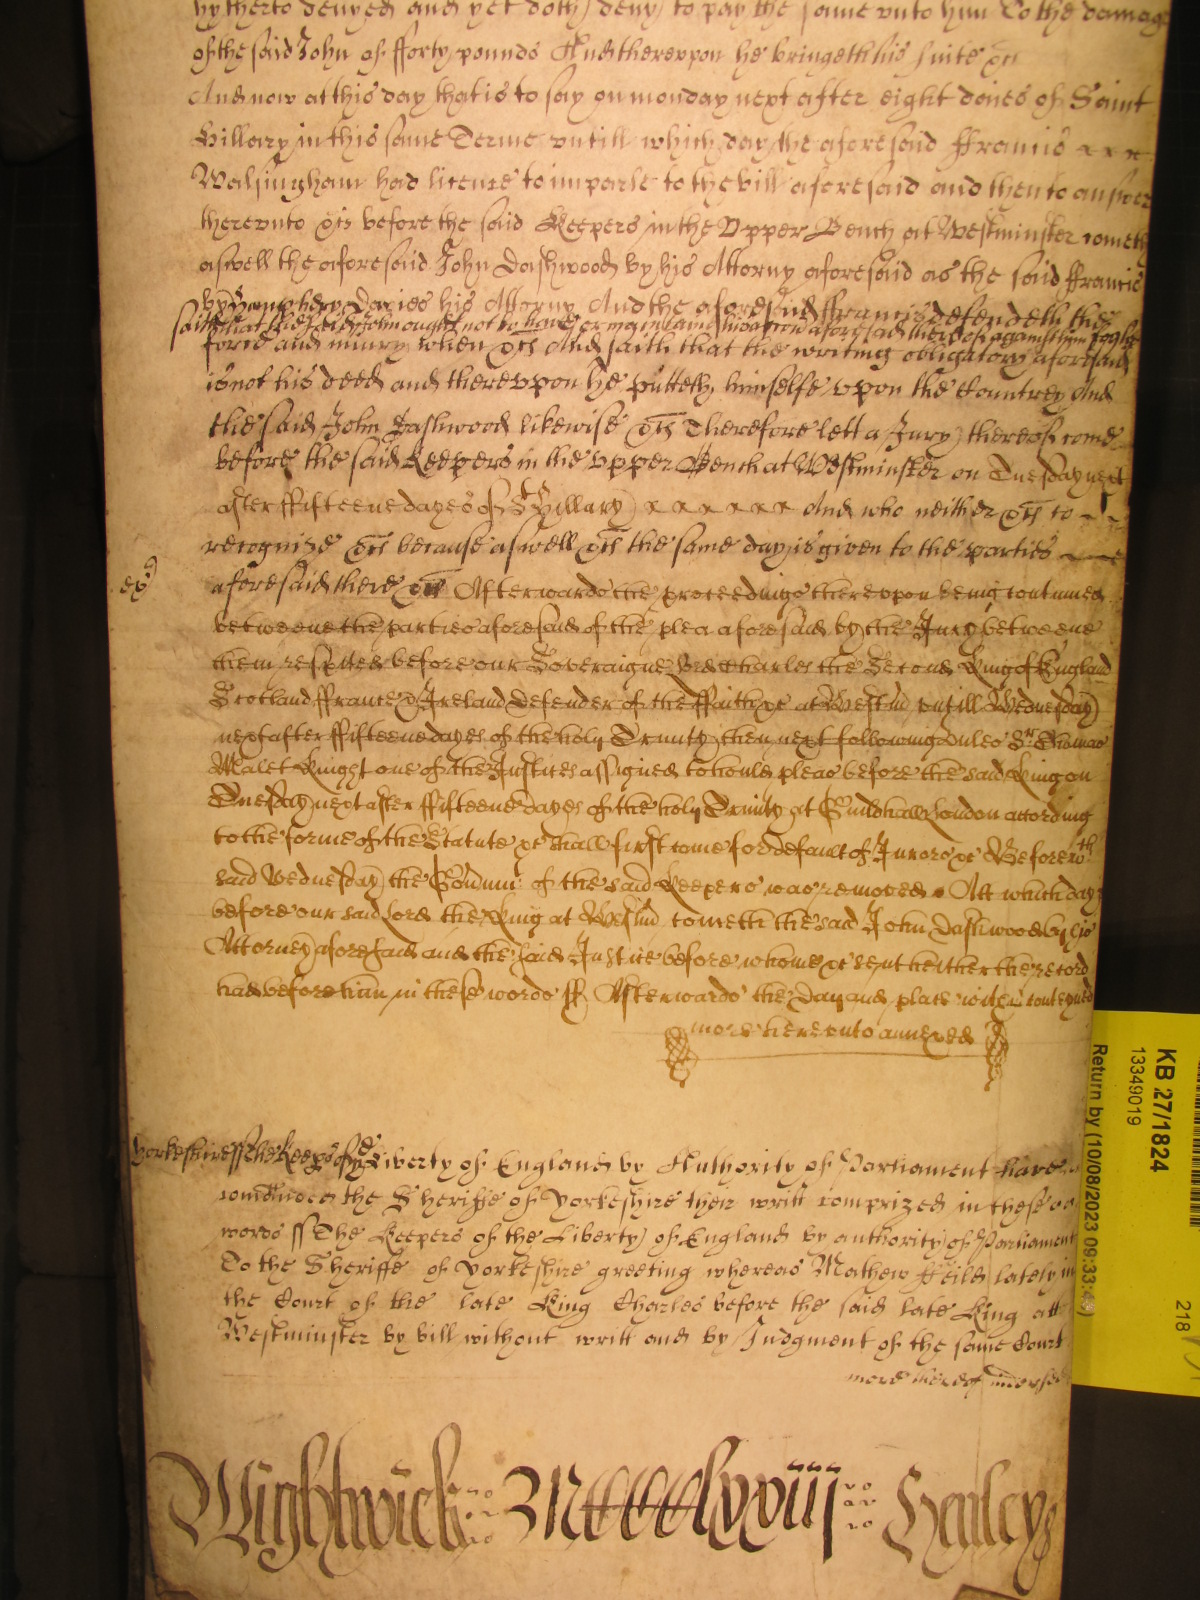 hytherto denyed and yet doth deny to pay the same vnto him To the damage
of the said John of fforty pounds And therevpon he bringeth his suite &c
And now at this day that is to say on monday next after eight daies of Saint
Hillary in this same Terme vntill which day the aforesaid ffrancis
Walsingham had licence to imparle to the bill aforesaid and then to answer
therevnto &c before the said Keepers in the Vpper Bench at Westminster cometh
aswell the aforesaid John Dashwood by his Attorny aforesaid as the said ffrancis
by Humphery Davies his Attorny And the aforesaid ffrancis defendeth the
saith that the said John ought not to have or maintaine his accon aforesaid thereof against him
force and iniury when &c And saith that the writing obligatory aforesaid
is not his deed and therevpon he putteth himselfe vpon the Countrey And
the said John Dashwood likewise &c Therefore lett a Jury thereof come
before the said Keepers in the vpper Bench at Westminster on Tuesday next
after ffifteene dayes of St Hillary x x x x x x And who neither &c to
recognize &c because aswell &c the same day is given to the parties
aforesaid there &c Afterwards the proceedings therevpon being continued
betweene the parties aforesaid of the plea aforesaid by the Jury betweene
them respited before our Soveraigne Lord Charles the Second King of England
Scotland ffrance & Ireland Defender of the ffaith &c at Westm vntill Wednesday
next after ffifteene dayes of the holy Trinity then next following vnles Sr Thomas
Malet Knight one of the Justices assigned to hould pleas before the said King on
Tuesday next after ffifteene dayes of the holy Trinity at Guildhall London according
to the forme of the Statute &c shall first come for default of Jurors &c Before wch
said Wednesday the of the said Keepers was removed Att which day
before our said lord the King at Westm cometh the said John Dashwood by his
Attorney aforesaid and the said Justice before whome &c sent hither the record
had before him in these words ss Afterwards the day and place within conteyned
more herevnto annexed
Yorkeshire ss The Keeps of the Liberty of England by Authority of Parliament have
comanded the Sheriffe of Yorkeshire their writt comprized in these
words ss The Keepers of the Liberty of England by authority of Parliament
To the Sheriffe of Yorkeshire greeting whereas Mathew ffeild lately in
the Court of the late King Charles before the said late King att
Westminster by bill without writt and by Judgment of the same Court
more thereof indorsed
Wightwick MCCCClxviij Henley
KB 27/1824
13349019
Return by (10/08/2023 09:33:4
218